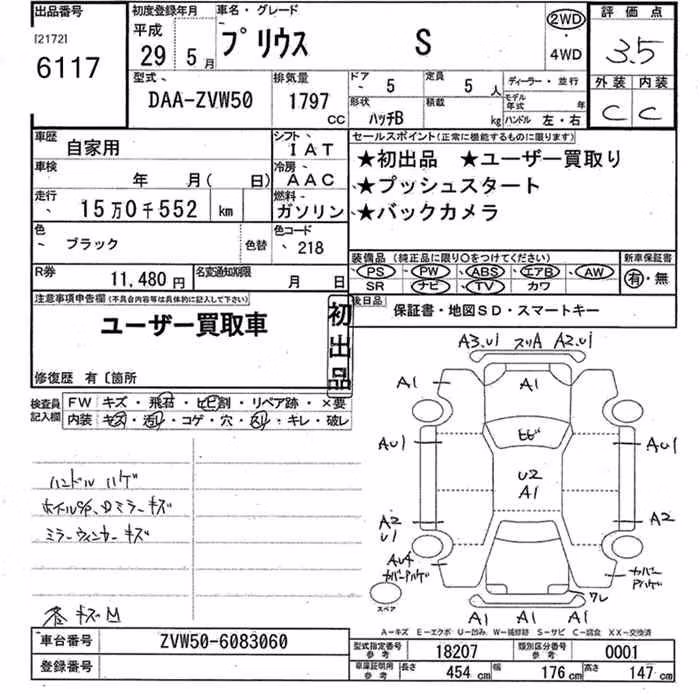 出品番号
[2172]
6117
初度登録年月
平成
29 5月
車名・グレード
プリウス S
2WD
・
4WD
評価点
3.5
外装 内装
C C
型式、
DAA-ZVW50
排気量
1797
CC
ドア
、 5
定員
、 5 人
形状
ハッチB
積載
kg
ディーラー・並行
モデル
年式 年
ハンドル 左・右
車歴
自家用
シフト、
IAT
冷房、
AAC
燃料-
ガソリン
車検
年 月( 日)
走行
、 15万0千552 km
色
、 ブラック
色替
色コード
、 218
R券
11,480円
名変通知期限
月 日
セールスポイント(正常に機能するものに限ります)
★初出品 ★ユーザー買取り
★プッシュスタート
★バックカメラ
装備品 (純正品に限り○をつけてください)
、PS 、PW 、ABS 、エアB 、AW
SR ナビ TV カワ
新車保証書
有・無
後日品
保証書・地図SD・スマートキー
注意事項申告欄(不具合内容等は具体的に記入して下さい)
ユーザー買取車
初出品
修復歴 有〔箇所
検査員
記入欄
FW キズ・飛石・ヒビ割・リペア跡・×要
内装 キズ・汚れ・コゲ・穴・スリ・キレ・破レ
ハンドル ハゲ
ミラーウィンカー キズ
キズM
A3.U1 スリA A2.U1
A1 A1 A1
ヒビ
AU1 AU1
U2
A1
A2
U1
A2
AU4
カバーアハゲ
カバー
アハゲ
スペア
ワレ
A1 A1 A1
A-キズ E-エクボ U-凹み W-補修跡 S-サビ C-腐食 XX-交換済
車台番号
ZVW50-6083060
登録番号
型式指定番号
参考
18207
類別区分番号
参考
0001
車庫証明用
参考
長さ 454 cm
幅 176 cm
高さ 147 cm